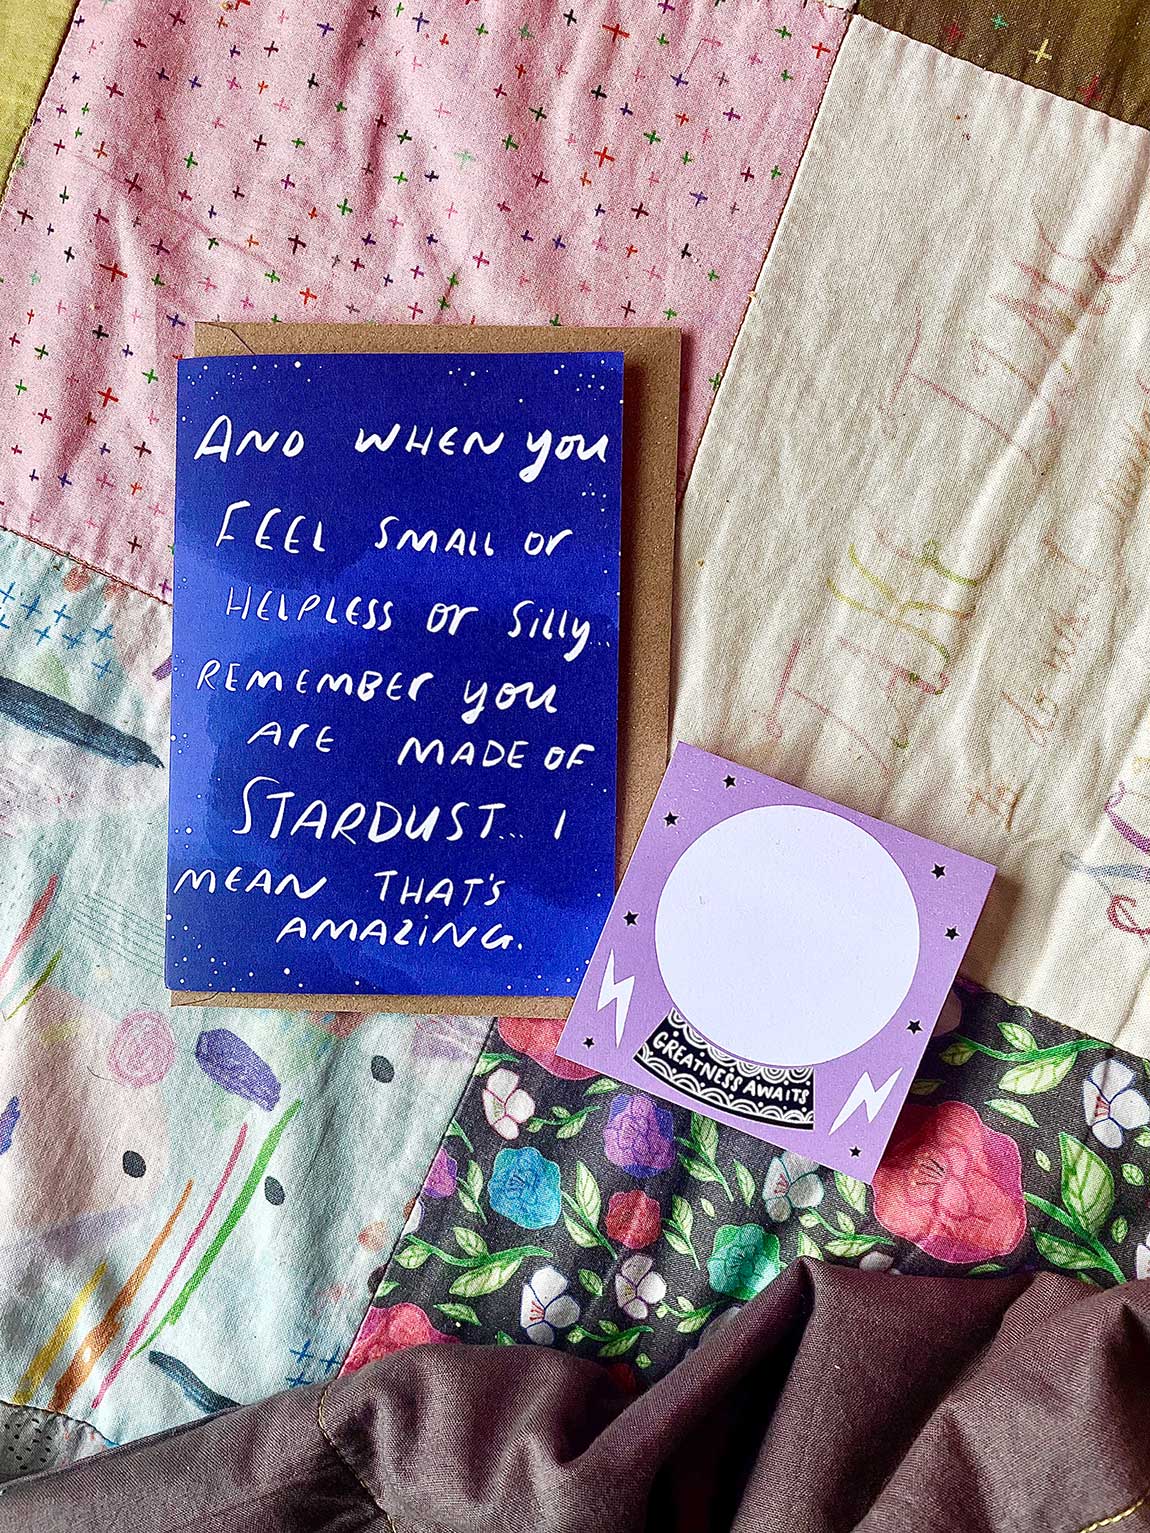 AND WHEN you
FEEL SMALL or
HELPLESS or Silly...
REMEMBER you
ArE MADE OF
STARDUST... I
MEAN THAT'S
AMAZiNG.
GREATNESS AWAITS
TAKE TIME